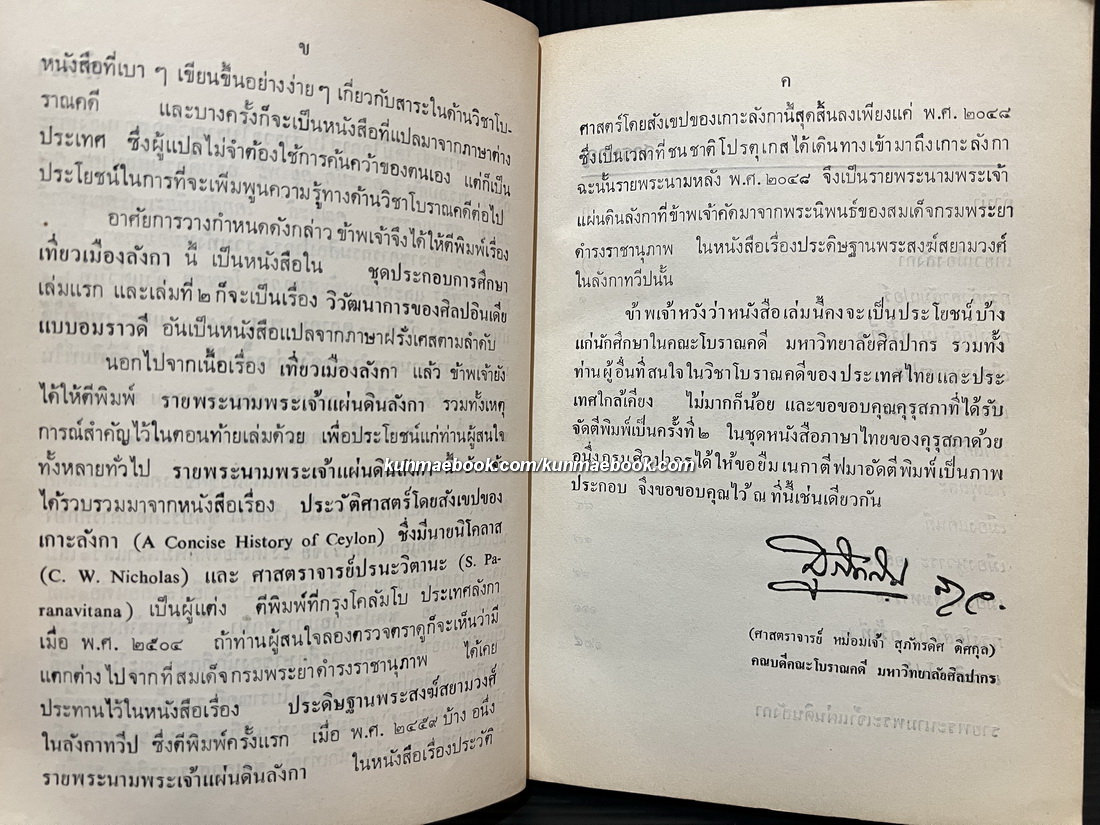 ข
หนังสือที่เบา ๆ เขียนขึ้นอย่างง่าย ๆ เกี่ยวกับสาระในด้านวิชาโบ-
ราณคดี และบางครั้งก็จะเป็นหนังสือที่แปลมาจากภาษาต่าง
ประเทศ ซึ่งผู้แปลไม่จำต้องใช้การค้นคว้าของตนเอง แต่ก็เป็น
ประโยชน์ในการที่จะเพิ่มพูนความรู้ทางด้านวิชาโบราณคดีต่อไป
อาศัยการวางกำหนดดังกล่าว ข้าพเจ้าจึงได้ให้ตีพิมพ์เรื่อง
เที่ยวเมืองลังกา นี้ เป็นหนังสือใน ชุดประกอบการศึกษา
เล่มแรก และเล่มที่ ๒ ก็จะเป็นเรื่อง วิวัฒนาการของศิลปอินเดีย
แบบอมราวดี อันเป็นหนังสือแปลจากภาษาฝรั่งเศสตามลำดับ
นอกไปจากเนื้อเรื่อง เที่ยวเมืองลังกา แล้ว ข้าพเจ้ายัง
ได้ให้ตีพิมพ์ รายพระนามพระเจ้าแผ่นดินลังกา รวมทั้งเหตุ
การณ์สำคัญไว้ในตอนท้ายเล่มด้วย เพื่อประโยชน์แก่ท่านผู้สนใจ
ทั้งหลายทั่วไป รายพระนามพระเจ้าแผ่นดินลังกา นี้
ได้รวบรวมมาจากหนังสือเรื่อง ประวัติศาสตร์โดยสังเขปของ
เกาะลังกา (A Concise History of Ceylon) ซึ่งมีนายนิโคลาส
(C. W. Nicholas) และ ศาสตราจารย์ปรนะวิตานะ (S. Pa-
ranavitana) เป็นผู้แต่ง ตีพิมพ์ที่กรุงโคลัมโบ ประเทศลังกา
เมื่อ พ.ศ. ๒๕๐๔ ถ้าท่านผู้สนใจลองตรวจตราดูก็จะเห็นว่ามี
แตกต่างไปจากที่สมเด็จกรมพระยาดำรงราชานุภาพ ได้เคย
ประทานไว้ในหนังสือเรื่อง ประดิษฐานพระสงฆ์สยามวงศ์
ในลังกาทวีป ซึ่งตีพิมพ์ครั้งแรก เมื่อ พ.ศ. ๒๔๕๙ บ้าง อนึ่ง
รายพระนามพระเจ้าแผ่นดินลังกา ในหนังสือเรื่องประวัติ
ค
ศาสตร์โดยสังเขปของเกาะลังกานี้สุดสิ้นลงเพียงแค่ พ.ศ. ๒๐๔๘
ซึ่งเป็นเวลาที่ชนชาติโปรตุเกสได้เดินทางเข้ามาถึงเกาะลังกา
ฉะนั้นรายพระนามหลัง พ.ศ. ๒๐๔๘ จึงเป็นรายพระนามพระเจ้า
แผ่นดินลังกาที่ข้าพเจ้าคัดมาจากพระนิพนธ์ของสมเด็จกรมพระยา
ดำรงราชานุภาพ ในหนังสือเรื่องประดิษฐานพระสงฆ์สยามวงศ์
ในลังกาทวีปนั้น
ข้าพเจ้าหวังว่าหนังสือเล่มนี้คงจะเป็นประโยชน์บ้าง
แก่นักศึกษาในคณะโบราณคดี มหาวิทยาลัยศิลปากร รวมทั้ง
ท่านผู้อื่นที่สนใจในวิชาโบราณคดีของประเทศไทยและประ
เทศใกล้เคียง ไม่มากก็น้อย และขอขอบคุณคุรุสภาที่ได้รับ
จัดตีพิมพ์เป็นครั้งที่ ๒ ในชุดหนังสือภาษาไทยของคุรุสภาด้วย
อนึ่งกรมศิลปากรได้ให้ขอยืมเนกาตีฟมาอัดตีพิมพ์เป็นภาพ
ประกอบ จึงขอขอบคุณไว้ ณ ที่นี้เช่นเดียวกัน
(ศาสตราจารย์ หม่อมเจ้า สุภัทรดิศ ดิศกุล)
คณบดีคณะโบราณคดี มหาวิทยาลัยศิลปากร
kunmaebook.com/kunmaebook.com